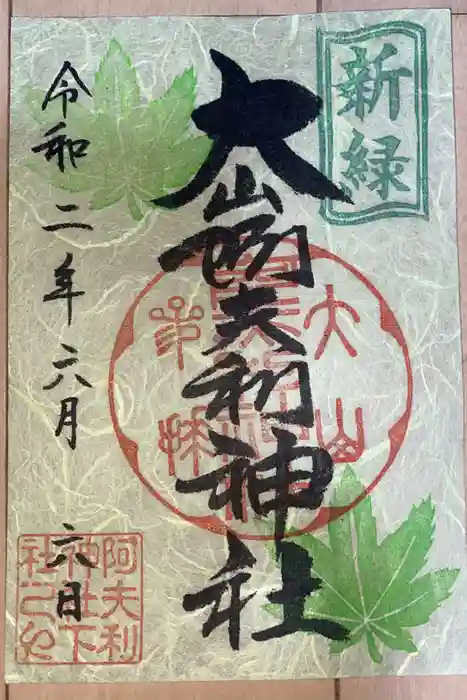 新緑
大山阿夫利神社
令和二年六月 六日
大山
阿夫利
神社下
社乃印